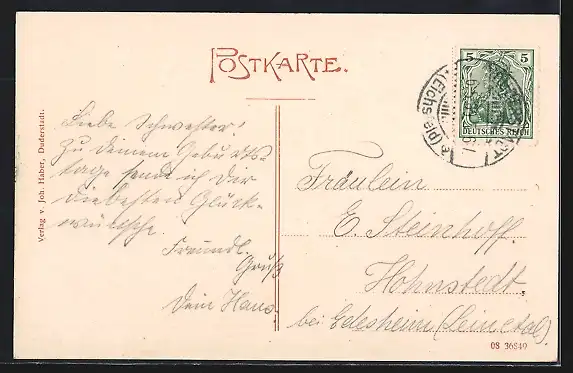 POSTKARTE.
5 5
DEUTSCHES REICH
(Eichs
Verlag v. Joh. Haber, Duderstadt.
Liebe Schwester!
Zu deinem Geburts-
tage sende ich Dir
die besten Glück-
wünsche.
Freundl.
Gruß
Dein Hans.
Fräulein
E. Steinhoff.
Hohnstedt,
bei Edesheim (Leinetal).
08 36849